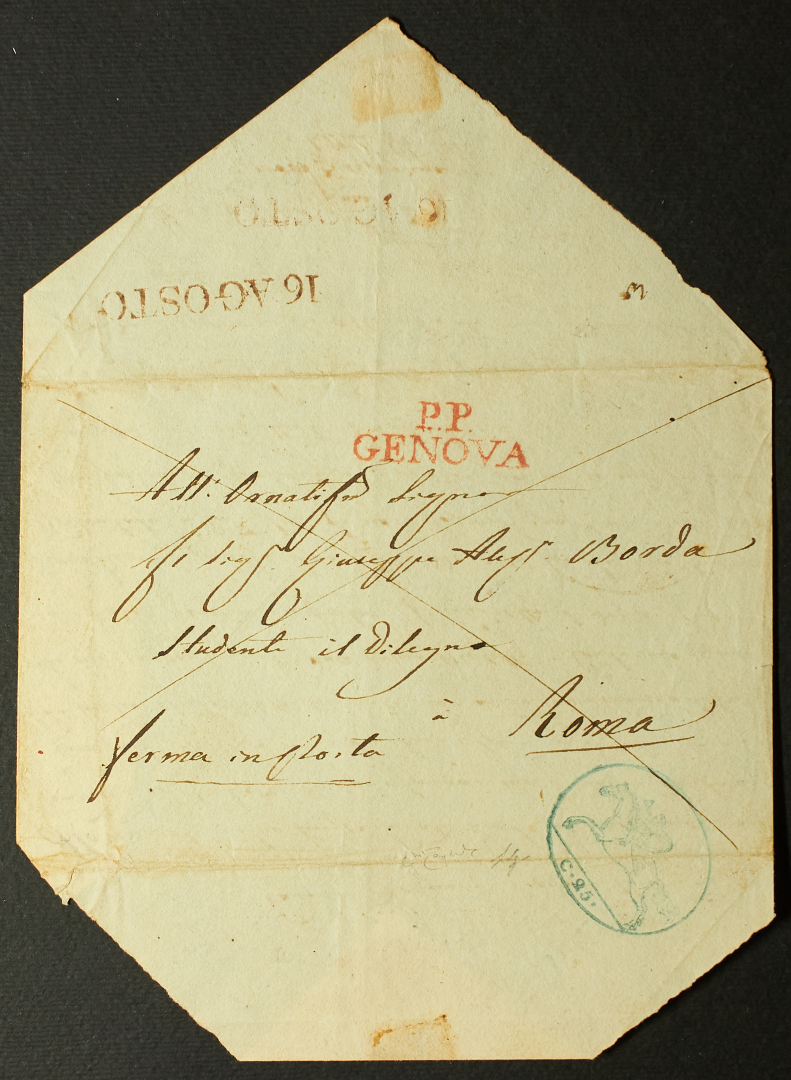 16 AGOSTO
16 AGOSTO
3
P.P.
GENOVA
All. Ornatissmo Signor
Il Sigr. Giuseppe Alessr. Borda
Studente il Disegno
à Roma
ferma in Posta
C. 25.